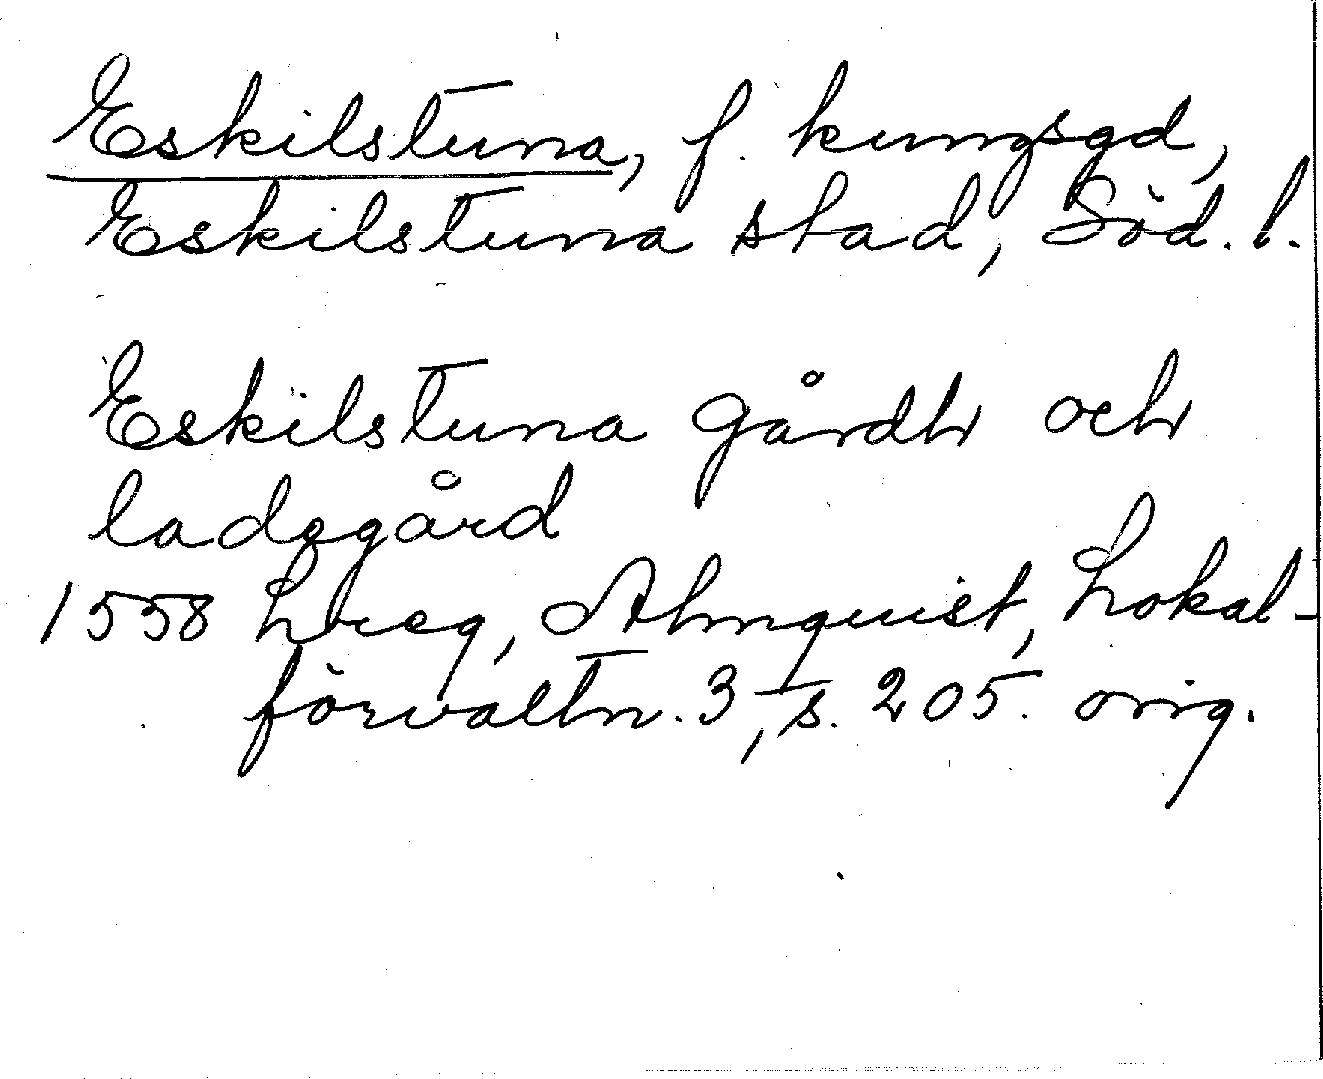 Eskilstuna, f. kungsgd,
Eskilstuna stad, Söd. l.
Eskilstuna gårdh och
ladegård
1558 hreg, Almquist, Lokal-
förvaltn. 3, s. 205. orig.